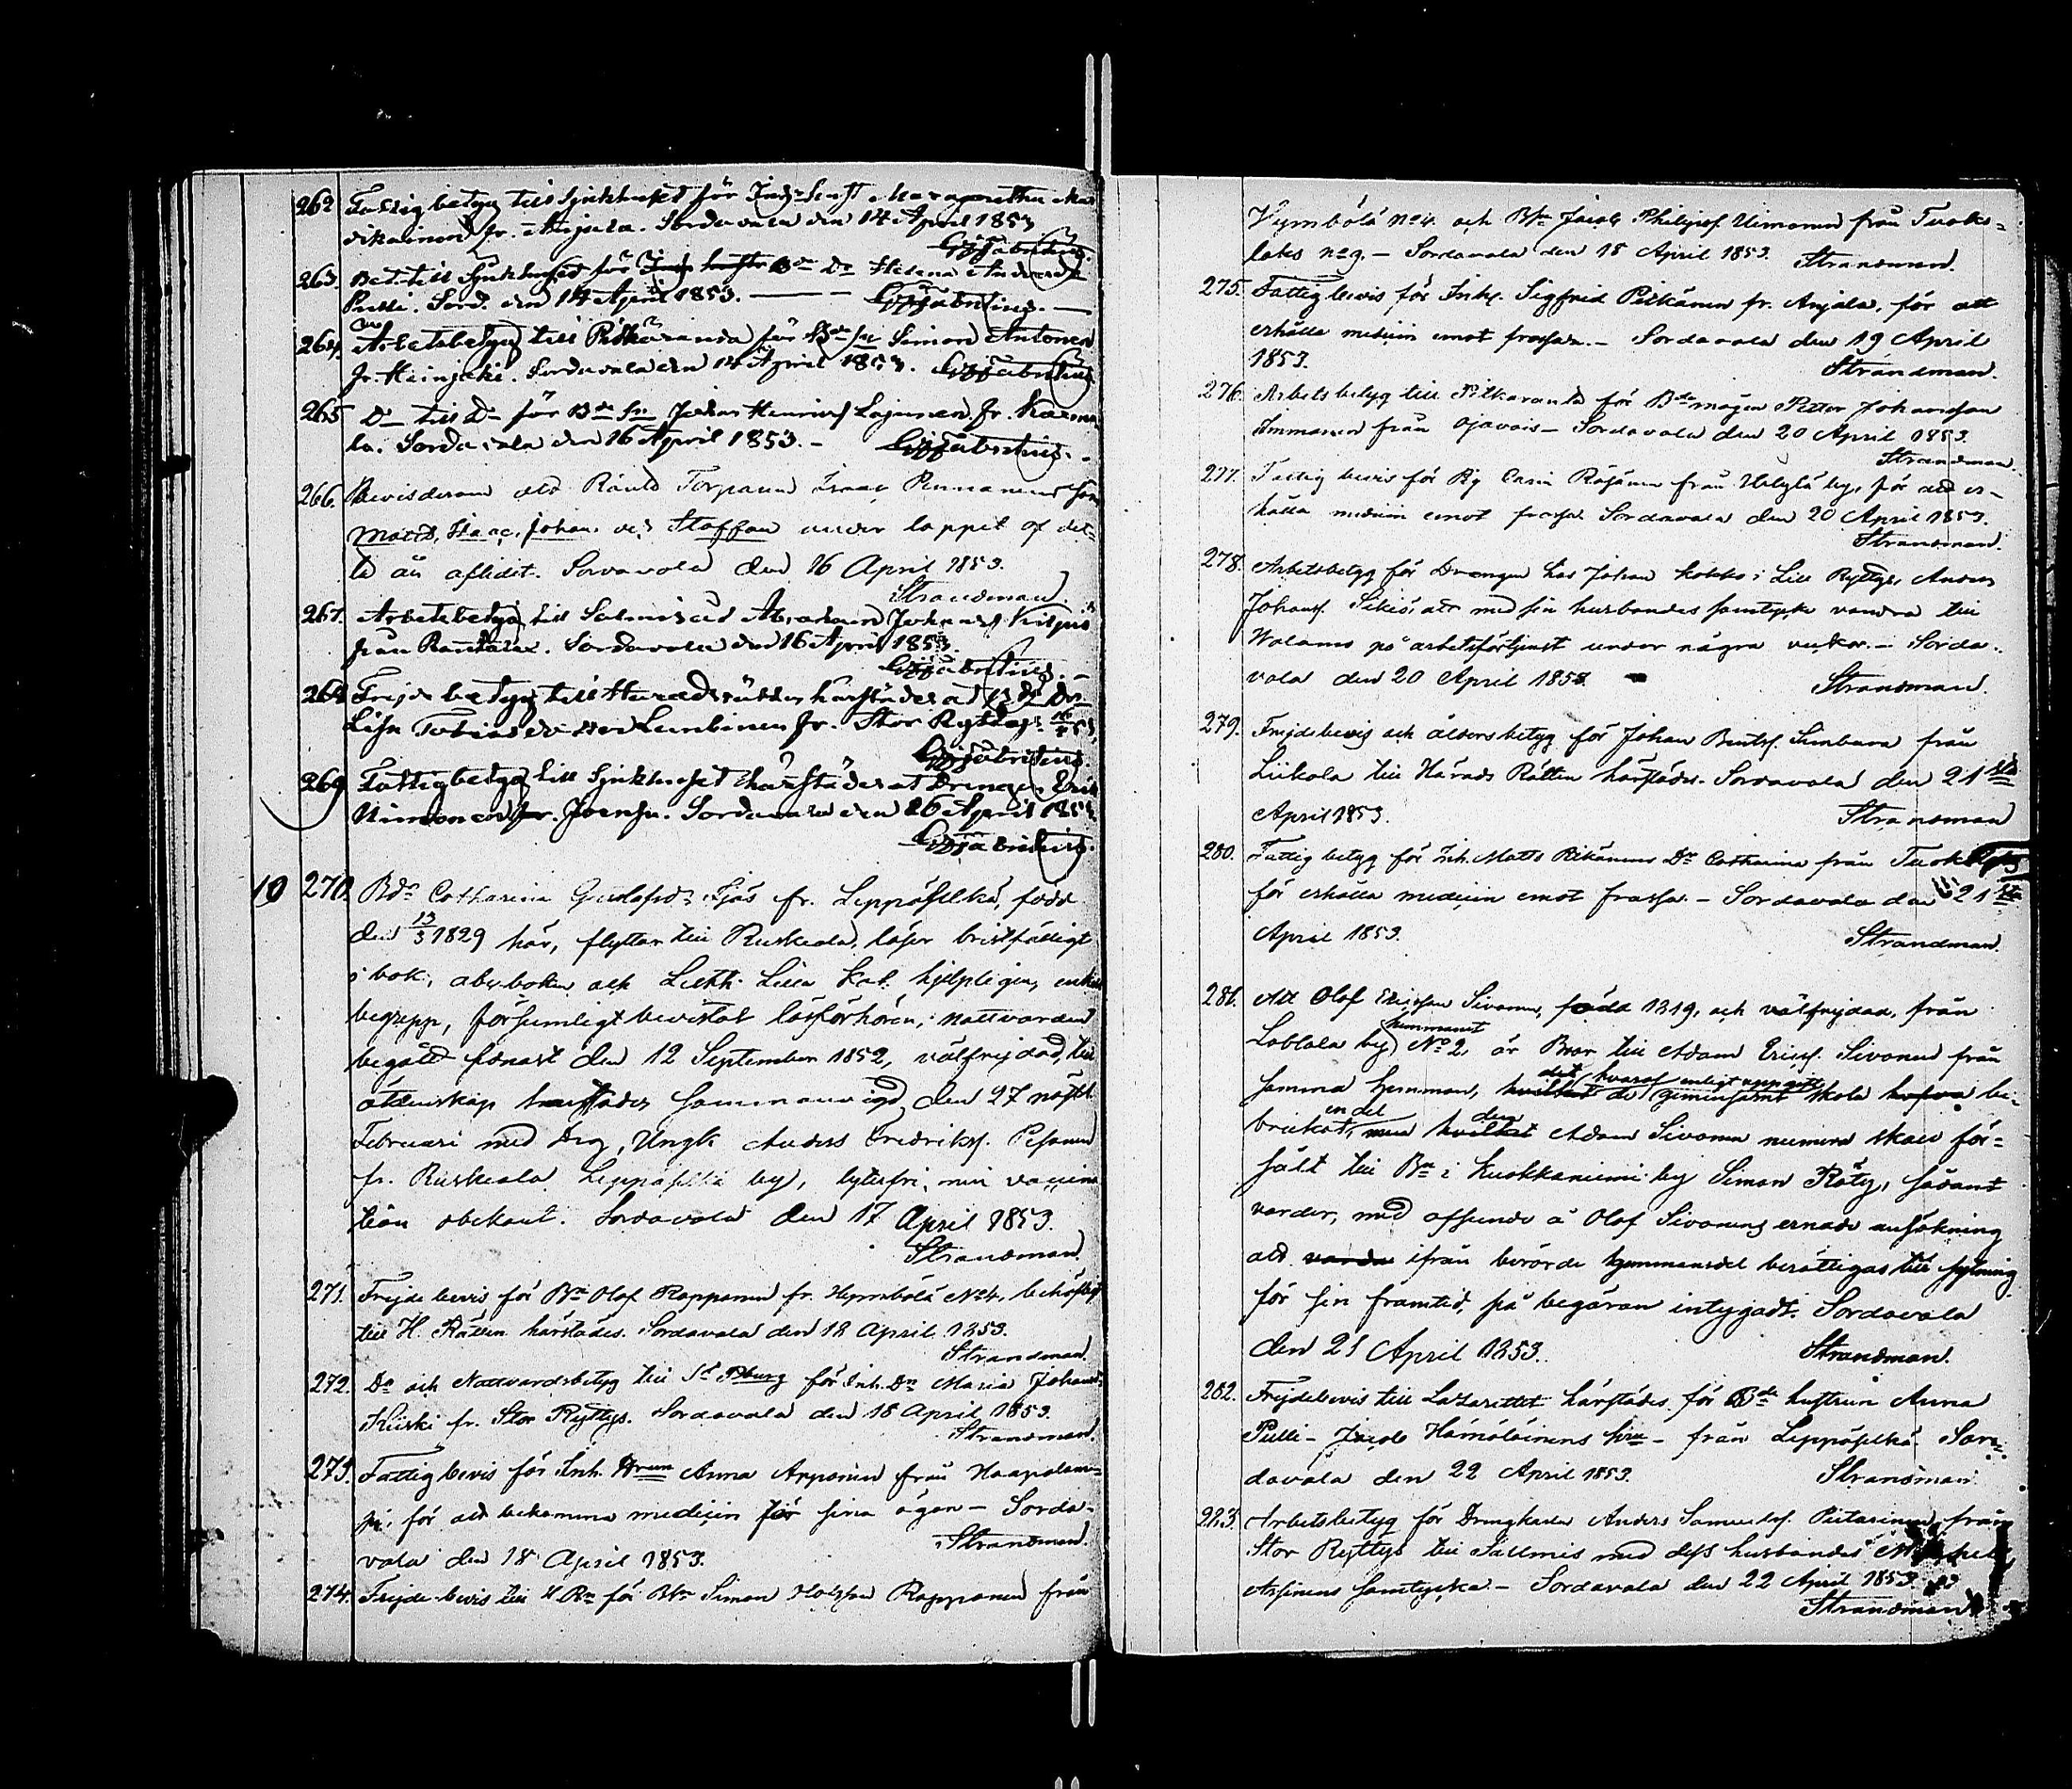 262. Fattigbetyg till Sjukhuset för Inh:
dikainen fr. Anjala. Sordavala den 14 April 1853
263. Bet. till Sjukhuset för Bde Dr Helena
Pulli. Sord. den 14 April 1853.
264. Arbetsbetyg till Pitkäranda för Bde Sn Simon Antonen
fr. Heinjoki. Sordavala den 14 April 1853.
265 Do till Do för Bde Sn Johan Henrics. Lajunen fr. Karma
la. Sordavala den 16 April 1853. –
266. Bevis derom att Torparen Isaac Pennanens
Matts, Isaac, Johan och Staffan under loppet af det-
ta år aflidit. Sordavala den 16 April 1853.
Strandman.
267. Arbetsbetyg till Salmis åt Abraham Johans.
från Rantalax. Sordavala den 16 April 1853.
268 Frejdebetyg till Häradsrätten härstädes åt
Lisa Tobiasdotter Lembinen fr. Stor Ryttys. 16/4 53,
269 Fattigbetyg till Sjukhuset härstädes åt Drengen Erik
Uimonen fr. Joensu. Sordavala den 16 April 1853
10 270. Bdr Catharina Gustafsdr Ijäs fr. Leppäselkä, född
den 13/3 1829 här, flyttar till Ruskeala, läser bristfälligt
i bok, abcboken och Luth. Lilla Kat. hjelpligen, enkelt
begrepp, försumligt bevistat läsförhören, nattvarden
begått senast den 12 September 1852, välfrejdad, till
äktenskap härstädes sammanvigd den 27 nästl.
Februari med Drg, Ungk. Anders Fredriks. Pesonen
fr. Ruskeala Leppäselkä by, lytesfri, men vaccina
tion obekant. Sordavala den 17 April 1853.
Strandman.
271. Frejdebevis för Bn Olof Rapponen fr. Hympölä No 4, behöfligt
till H. Rätten härstädes. Sordavala den 18 April 1853.
Strandman.
272. Do och Nattvardsbetyg till St Pburg för Inh. Dr Maria Johansdr
Kiiski fr. Stor Ryttys. Sordavala den 18 April 1853.
Strandman.
273. Fattigbevis för Inh. Hrun Anna Apponen från Haapalam-
pi, för att bekomma medicin för sina ögon – Sorda-
vala den 18 April 1853. Strandman.
274. Frejdebevis till H Rn för Bn Simon Olofsson Rapponen från
Hympölä No 4. och Bn Jacob Philipss. Uimonen från Tuoks-
laks No 9. – Sordavala den 18 April 1853. Strandman.
275. Fattigbevis för Inh. Sigfrid Pitkänen fr. Anjala, för att
erhålla medicin emot frossan. – Sordavala den 19 April
1853. Strandman.
276. Arbetsbetyg till Pitkäranta för Bdemågen Petter Johansson
Immonen från Ojavois – Sordavala den 20 April 1853.
Strandman.
277. Fattigbevis för Räsänen från Helylä by, för att er-
hålla medicin emot frossa. Sordavala den 20 April 1853.
Strandman.
278. Arbetsbetyg för Drengen hos Johan Kokko i Lill Ryttys, Anders
Johanss. Sikiö, att med sin husbondes samtycke vandra till
Walamo på arbetsförtjenst under några veckor. – Sorda-
vala den 20 April 1853. Strandman.
279. Frejdebevis och åldersbetyg för Johan Simbura från
Liikola till Härads Rätten härstädes. Sordavala den 21sta
April 1853. Strandman
280. Fattigbetyg för Inh. Matts Dr Catharina från
för erhålla medicin emot frossa. – Sordavala den 21sta
April 1853. Strandman.
281. Att Olof Ericsson Sivonen, född 1819, och välfrejdad, från
Lohlala by hemmanet No 2, är Bror till Adam Ericss. Sivonen från
samma hemman, hvilket det hvaraf de enligt uppgift gemensamt skola hafva be-
brukat, en del men hvilket den Adam Sivonen numera skall för-
sålt till Bn i Kuokkaniemi by Simon Räty, sådant
varder, med afseende å Olof Sivonens ernade ansökning
att varda ifrån berörde hemmansdel berättigas till sytning
för sin framtid, på begäran intygadt. Sordavala
den 21 April 1853. Strandman.
282. Frejdebevis till Lazarettet härstädes för Bde hustrun Anna
Pulli – Jacob Hämäläinens hru – från Leppäselkä. Sor-
davala den 22 April 1853. Strandman.
283. Arbetsbetyg för Drengkarlen Anders Samuelss. Pietarinen från
Stor Ryttys till Salmis med dess husbondes
Asp­inens samtycke. – Sordavala den 22 April 1853
Strandman